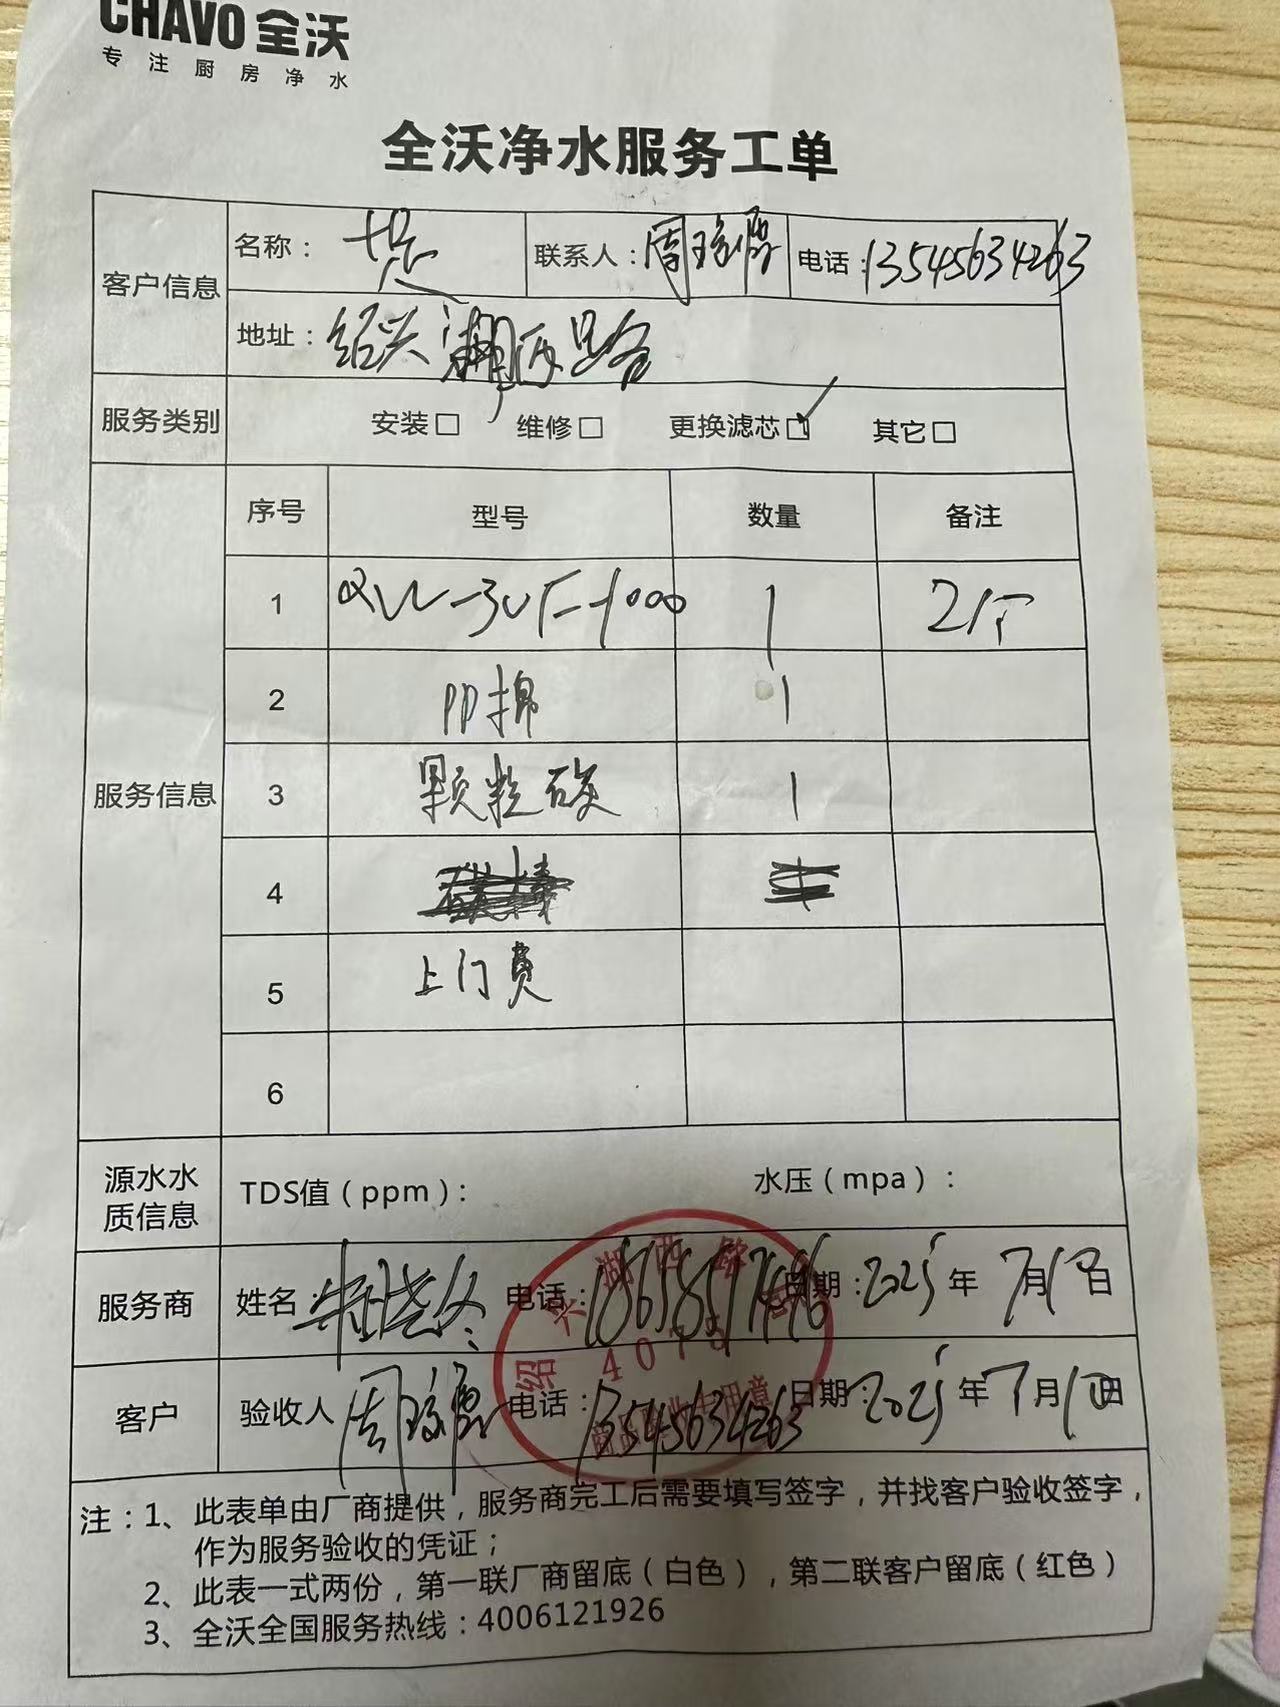 CHAVO 全沃
专注厨房净水
全沃净水服务工单
客户信息 名称： 联系人：周 电话：13545634263
地址：绍兴湖西路
服务类别 安装□ 维修□ 更换滤芯☑ 其它□
服务信息 序号 型号 数量 备注
1 QW-3UF-1000 1 2个
2 PP棉 1
3 颗粒碳 1
4
5 上门费
6
源水水质信息 TDS值（ppm）： 水压（mpa）：
服务商 姓名： 电话： 日期：2025年7月10日
客户 验收人 周 电话：13545634263 日期：2025年7月10日
注：1、此表单由厂商提供，服务商完工后需要填写签字，并找客户验收签字，
作为服务验收的凭证；
2、此表一式两份，第一联厂商留底（白色），第二联客户留底（红色）
3、全沃全国服务热线：4006121926